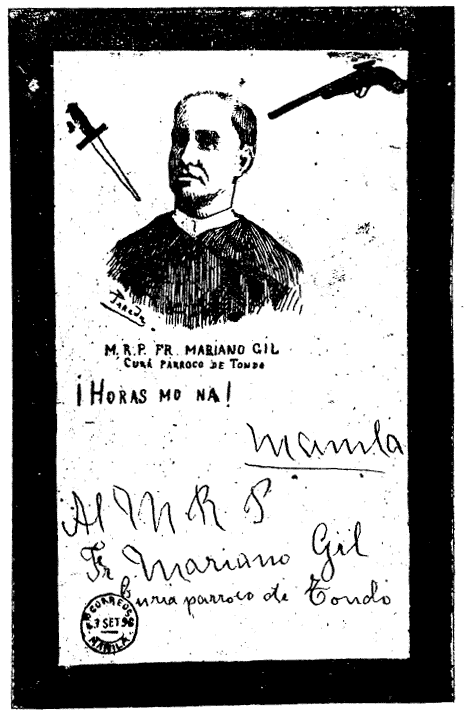 M.R.P. FR. MARIANO GIL
CURA PÁRROCO DE TONDO
¡HORAS MO NA!
Manila
Al M R P
Fr Mariano Gil
Curia parroco de Tondo
CORREOS
3 SET 96
MANILA